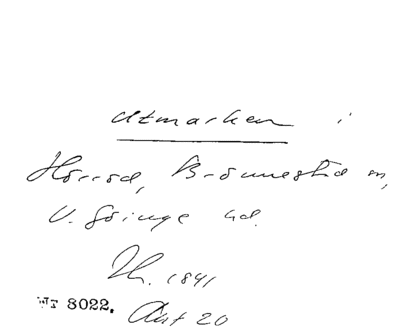 Utmarken i
Hörröd, Brönnestad sn,
V. Göinge hd.
Th. 1841
Nr 8022. Aut 20